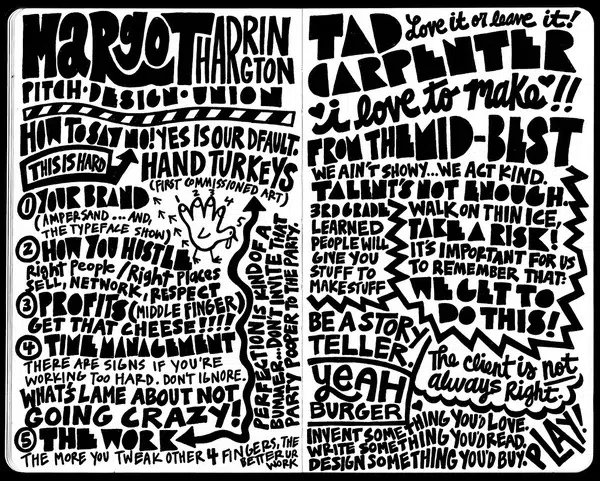 MARGOT HARRINGTON
PITCH·DESIGN·UNION
HOW TO SAY NO! YES IS OUR DFAULT.
THIS IS HARD
HAND TURKEYS
(FIRST COMMISSIONED ART)
1 YOUR BRAND
(AMPERSAND... AND,
THE TYPEFACE SHOW)
1 2 3 4 5
2 HOW YOU HUSTLE
Right People / Right Places
SELL, NETWORK, RESPECT
3 PROFITS (MIDDLE FINGER)
GET THAT CHEESE!!!!
4 TIME MANAGEMENT
THERE ARE SIGNS IF YOU'RE
WORKING TOO HARD. DON'T IGNORE.
WHAT'S LAME ABOUT NOT
GOING CRAZY!
5 THE WORK
THE MORE YOU TWEAK OTHER 4 FINGERS, THE
BETTER UR
WORK
PERFECTION IS KIND OF A
BUMMER... DON'T INVITE THAT
PARTY POOPER TO THE PARTY.
TAD
Love it or leave it!
CARPENTER
i love to make!!
FROM THE MID-BEST
WE AIN'T SHOWY... WE ACT KIND.
TALENT'S NOT ENOUGH.
3RD GRADE
LEARNED
PEOPLE WILL
GIVE YOU
STUFF TO
MAKE STUFF
WALK ON THIN ICE,
TAKE A RISK!
IT'S IMPORTANT FOR US
TO REMEMBER THAT:
WE GET TO
DO THIS!
BE A STORY
TELLER.
YEAH
BURGER
The client is not
always Right.
INVENT SOMETHING YOU'D LOVE.
WRITE SOMETHING YOU'D READ.
DESIGN SOMETHING YOU'D BUY.
PLAY!